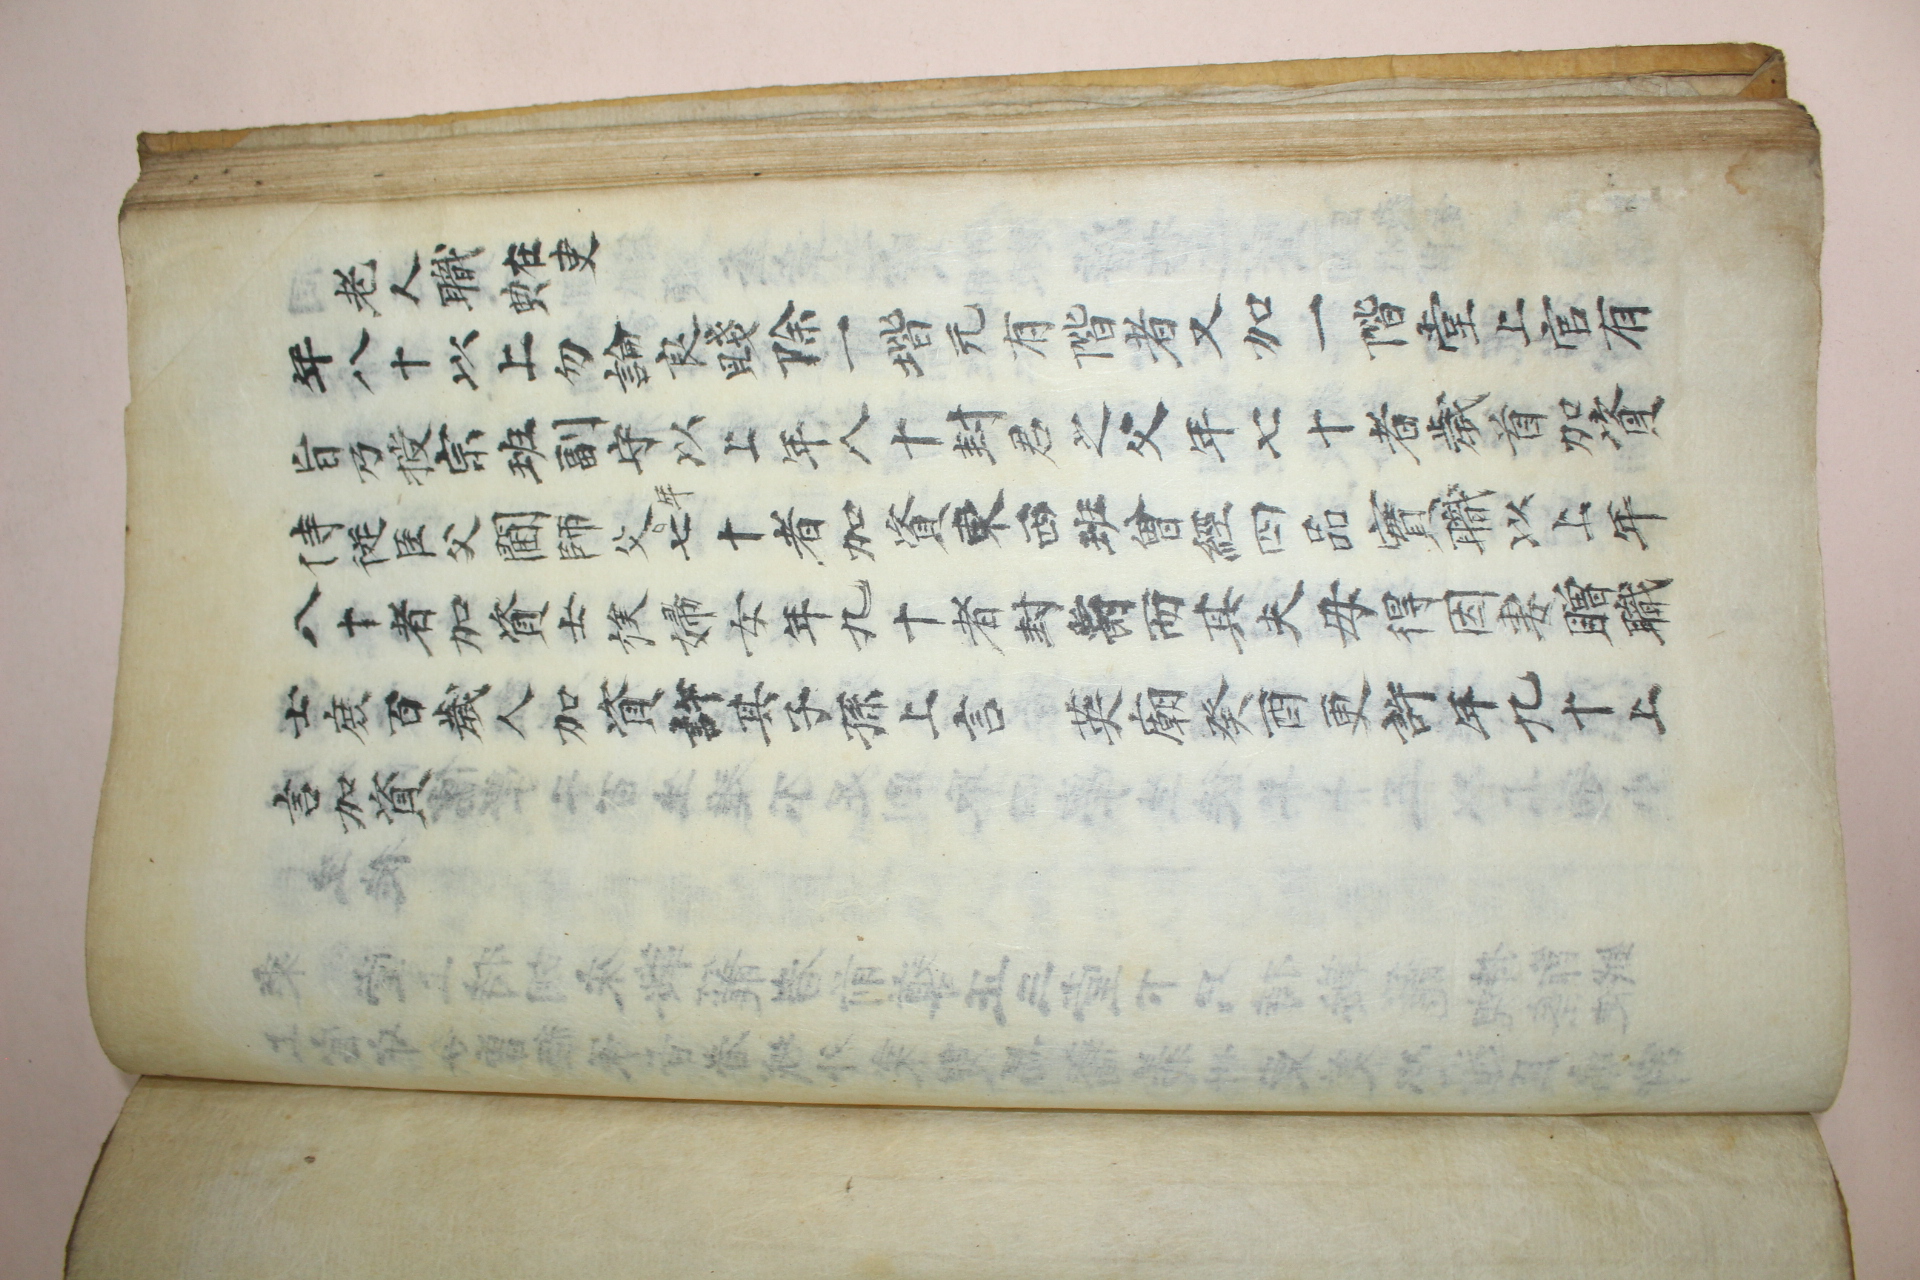 老人職 典在吏
年八十以上勿論良賤除一堦元有階者又加一階堂上官有
旨乃授宗班副守以上年八十封君之父年七十者歲首加資
侍從臣父閫帥父年七十者加資東西班曾經四品實職以上年
八十者加資士族婦女年九十者封爵而其夫毋得因妻贈職
士庶百歲人加資許其子孫上言 英廟癸酉更許年九十上
言加資